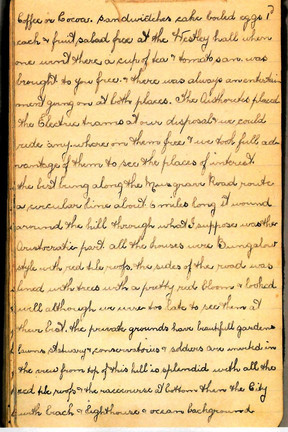 Coffee or Cocoa. sandwiches cake boiled eggs 1
each & fruit salad free at the Westley hall when
one went there a cup of tea & tomato san. was
brought to you free. & there was always an entertain
ment going on at both places. The Authorites placed
the Electric trams at our disposal we could
ride anywhere on them free & we took full ad-
vantage of them to see the places of interest.
the best being along the Musgrave Road route
a circular line about 6 miles long it wound
around the hill through what I suppose was the
Aristocratic part all the houses were Bungalow
style with red tile roofs. the sides of the road was
lined with trees with a pretty red bloom & looked
well although we were too late to see them at
their best. the private grounds have beautifull gardens
lawns statuary & conservatories & soldiers are invited in
the view from top of this hill is splendid with all the
red tile roofs & the racecourse at bottom then the City
with beach & lighthouse & ocean background